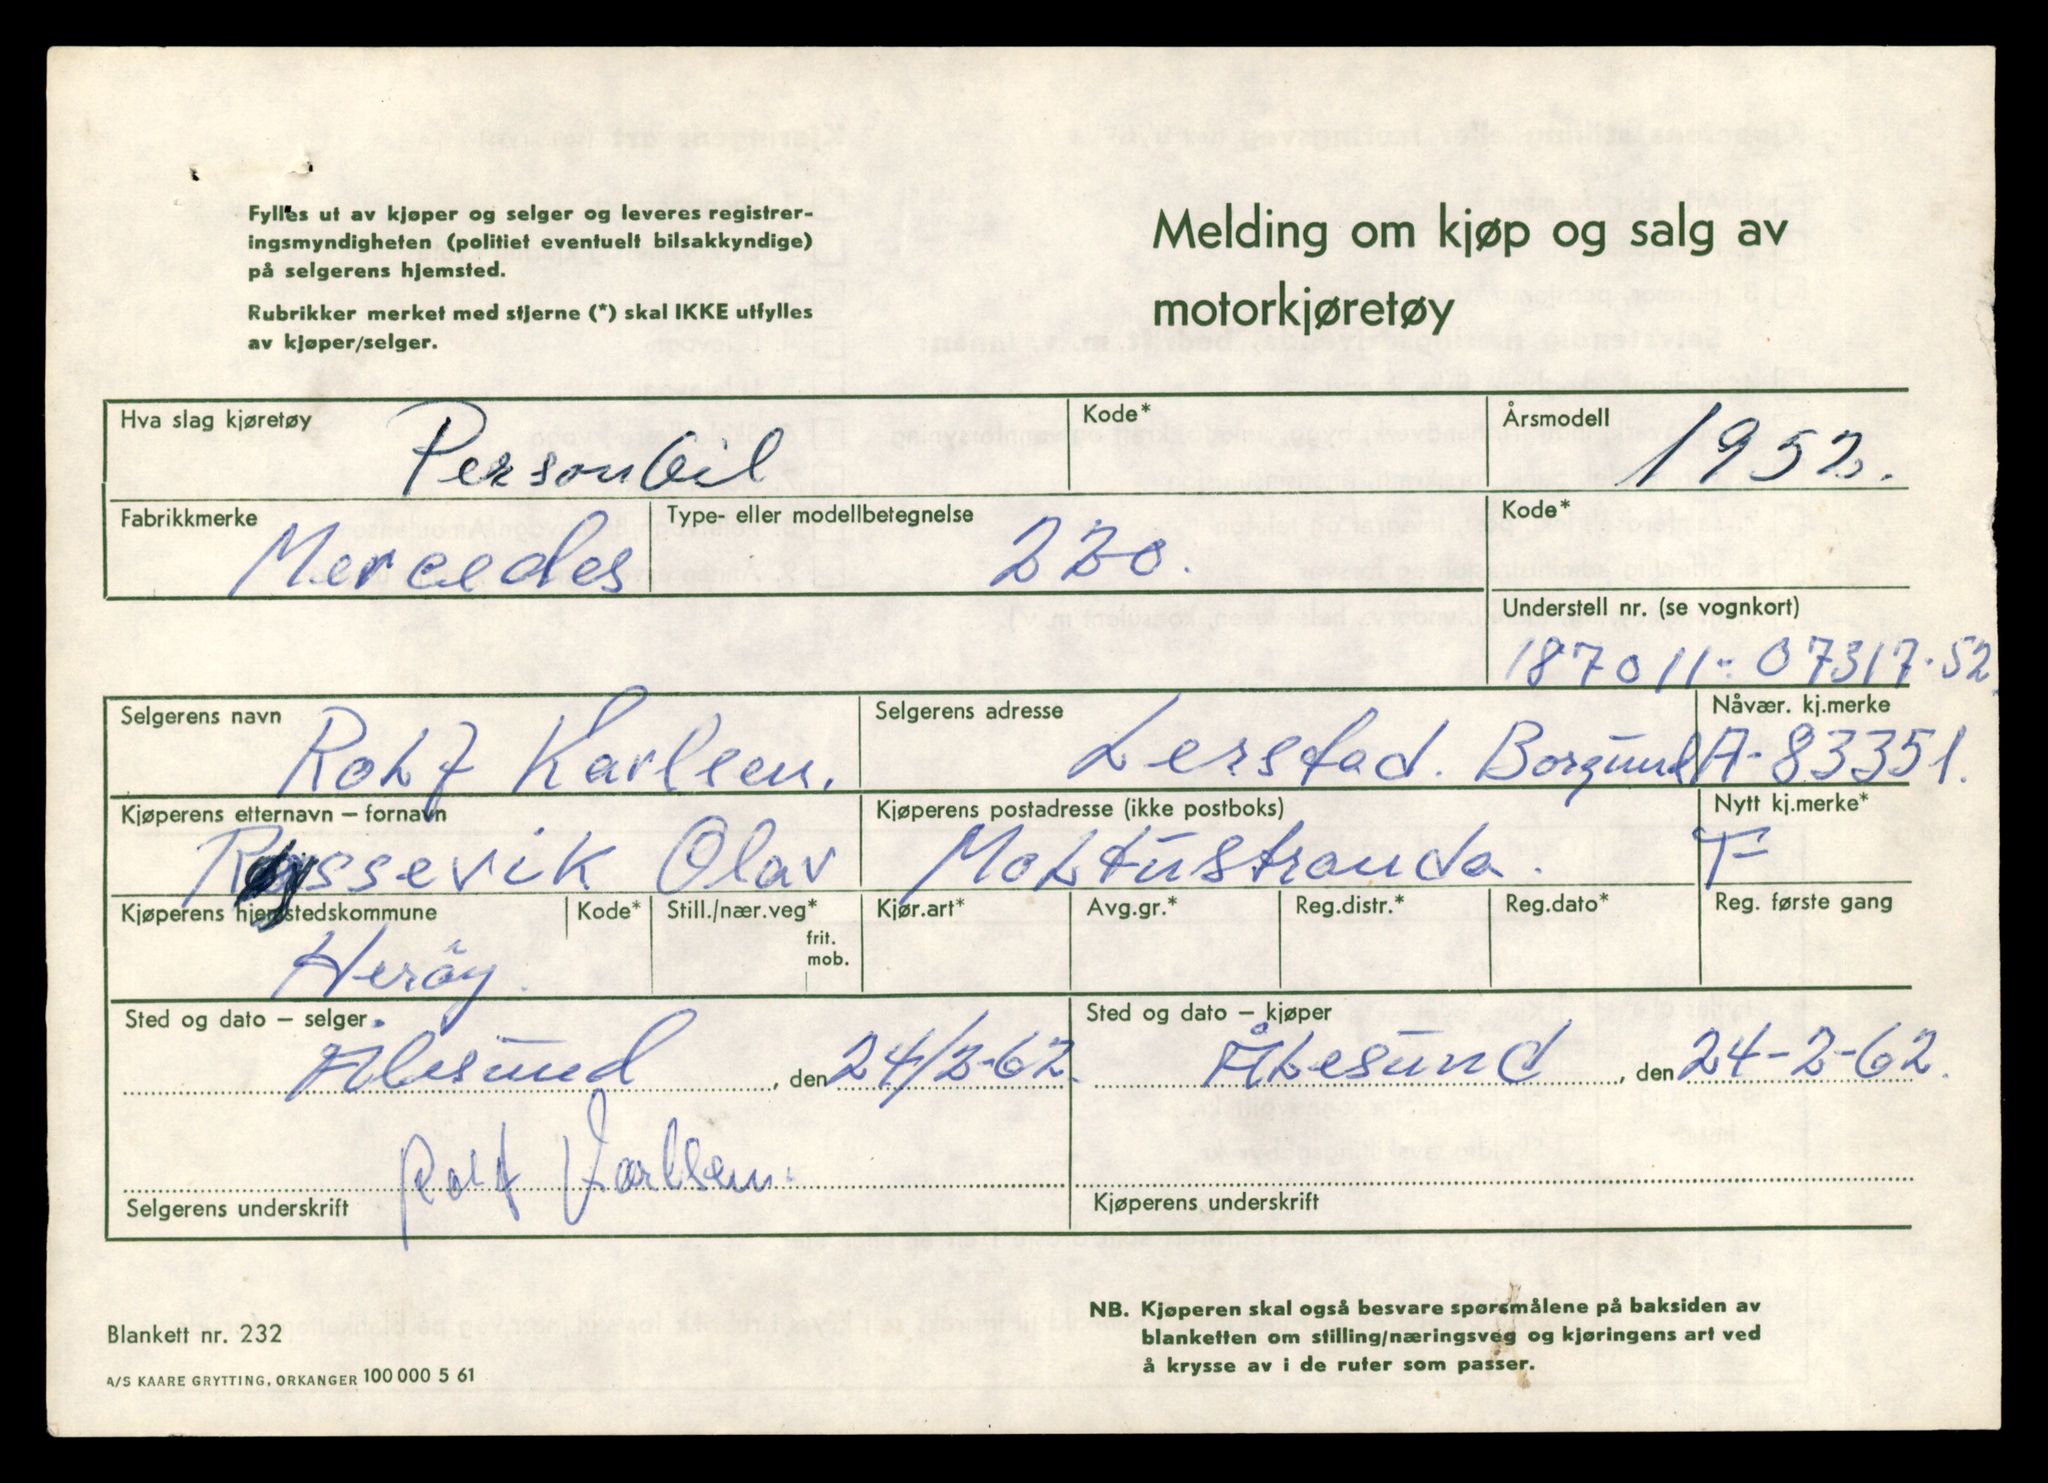 Fylles ut av kjøper og selger og leveres registrer-
ingsmyndigheten (politiet eventuelt bilsakkyndige)
på selgerens hjemsted.
Rubrikker merket med stjerne (*) skal IKKE utfylles
av kjøper/selger.
Melding om kjøp og salg av
motorkjøretøy
Hva slag kjøretøy Personbil Kode* Årsmodell 1952.
Fabrikkmerke Mercedes Type- eller modellbetegnelse 220. Kode*
Understell nr. (se vognkort)
187011-07317-52
Selgerens navn Rolf Karlsen. Selgerens adresse Lerstad. Borgund Nåvær. kj.merke A-83351.
Kjøperens etternavn – fornavn Kjøperens postadresse (ikke postboks) Nytt kj.merke*
Olav Moltustranda.
Kjøperens hjemstedskommune Kode* Still./nær.veg* Kjør.art* Avg.gr.* Reg.distr.* Reg.dato* Reg. første gang
frit.
mob.
Herøy.
Sted og dato – selger. Sted og dato – kjøper
Ålesund, den 24/2-62. Ålesund, den 24-2-62.
Rolf Karlsen.
Selgerens underskrift Kjøperens underskrift
NB. Kjøperen skal også besvare spørsmålene på baksiden av
blanketten om stilling/næringsveg og kjøringens art ved
å krysse av i de ruter som passer.
Blankett nr. 232
A/S KAARE GRYTTING, ORKANGER 100 000 5 61